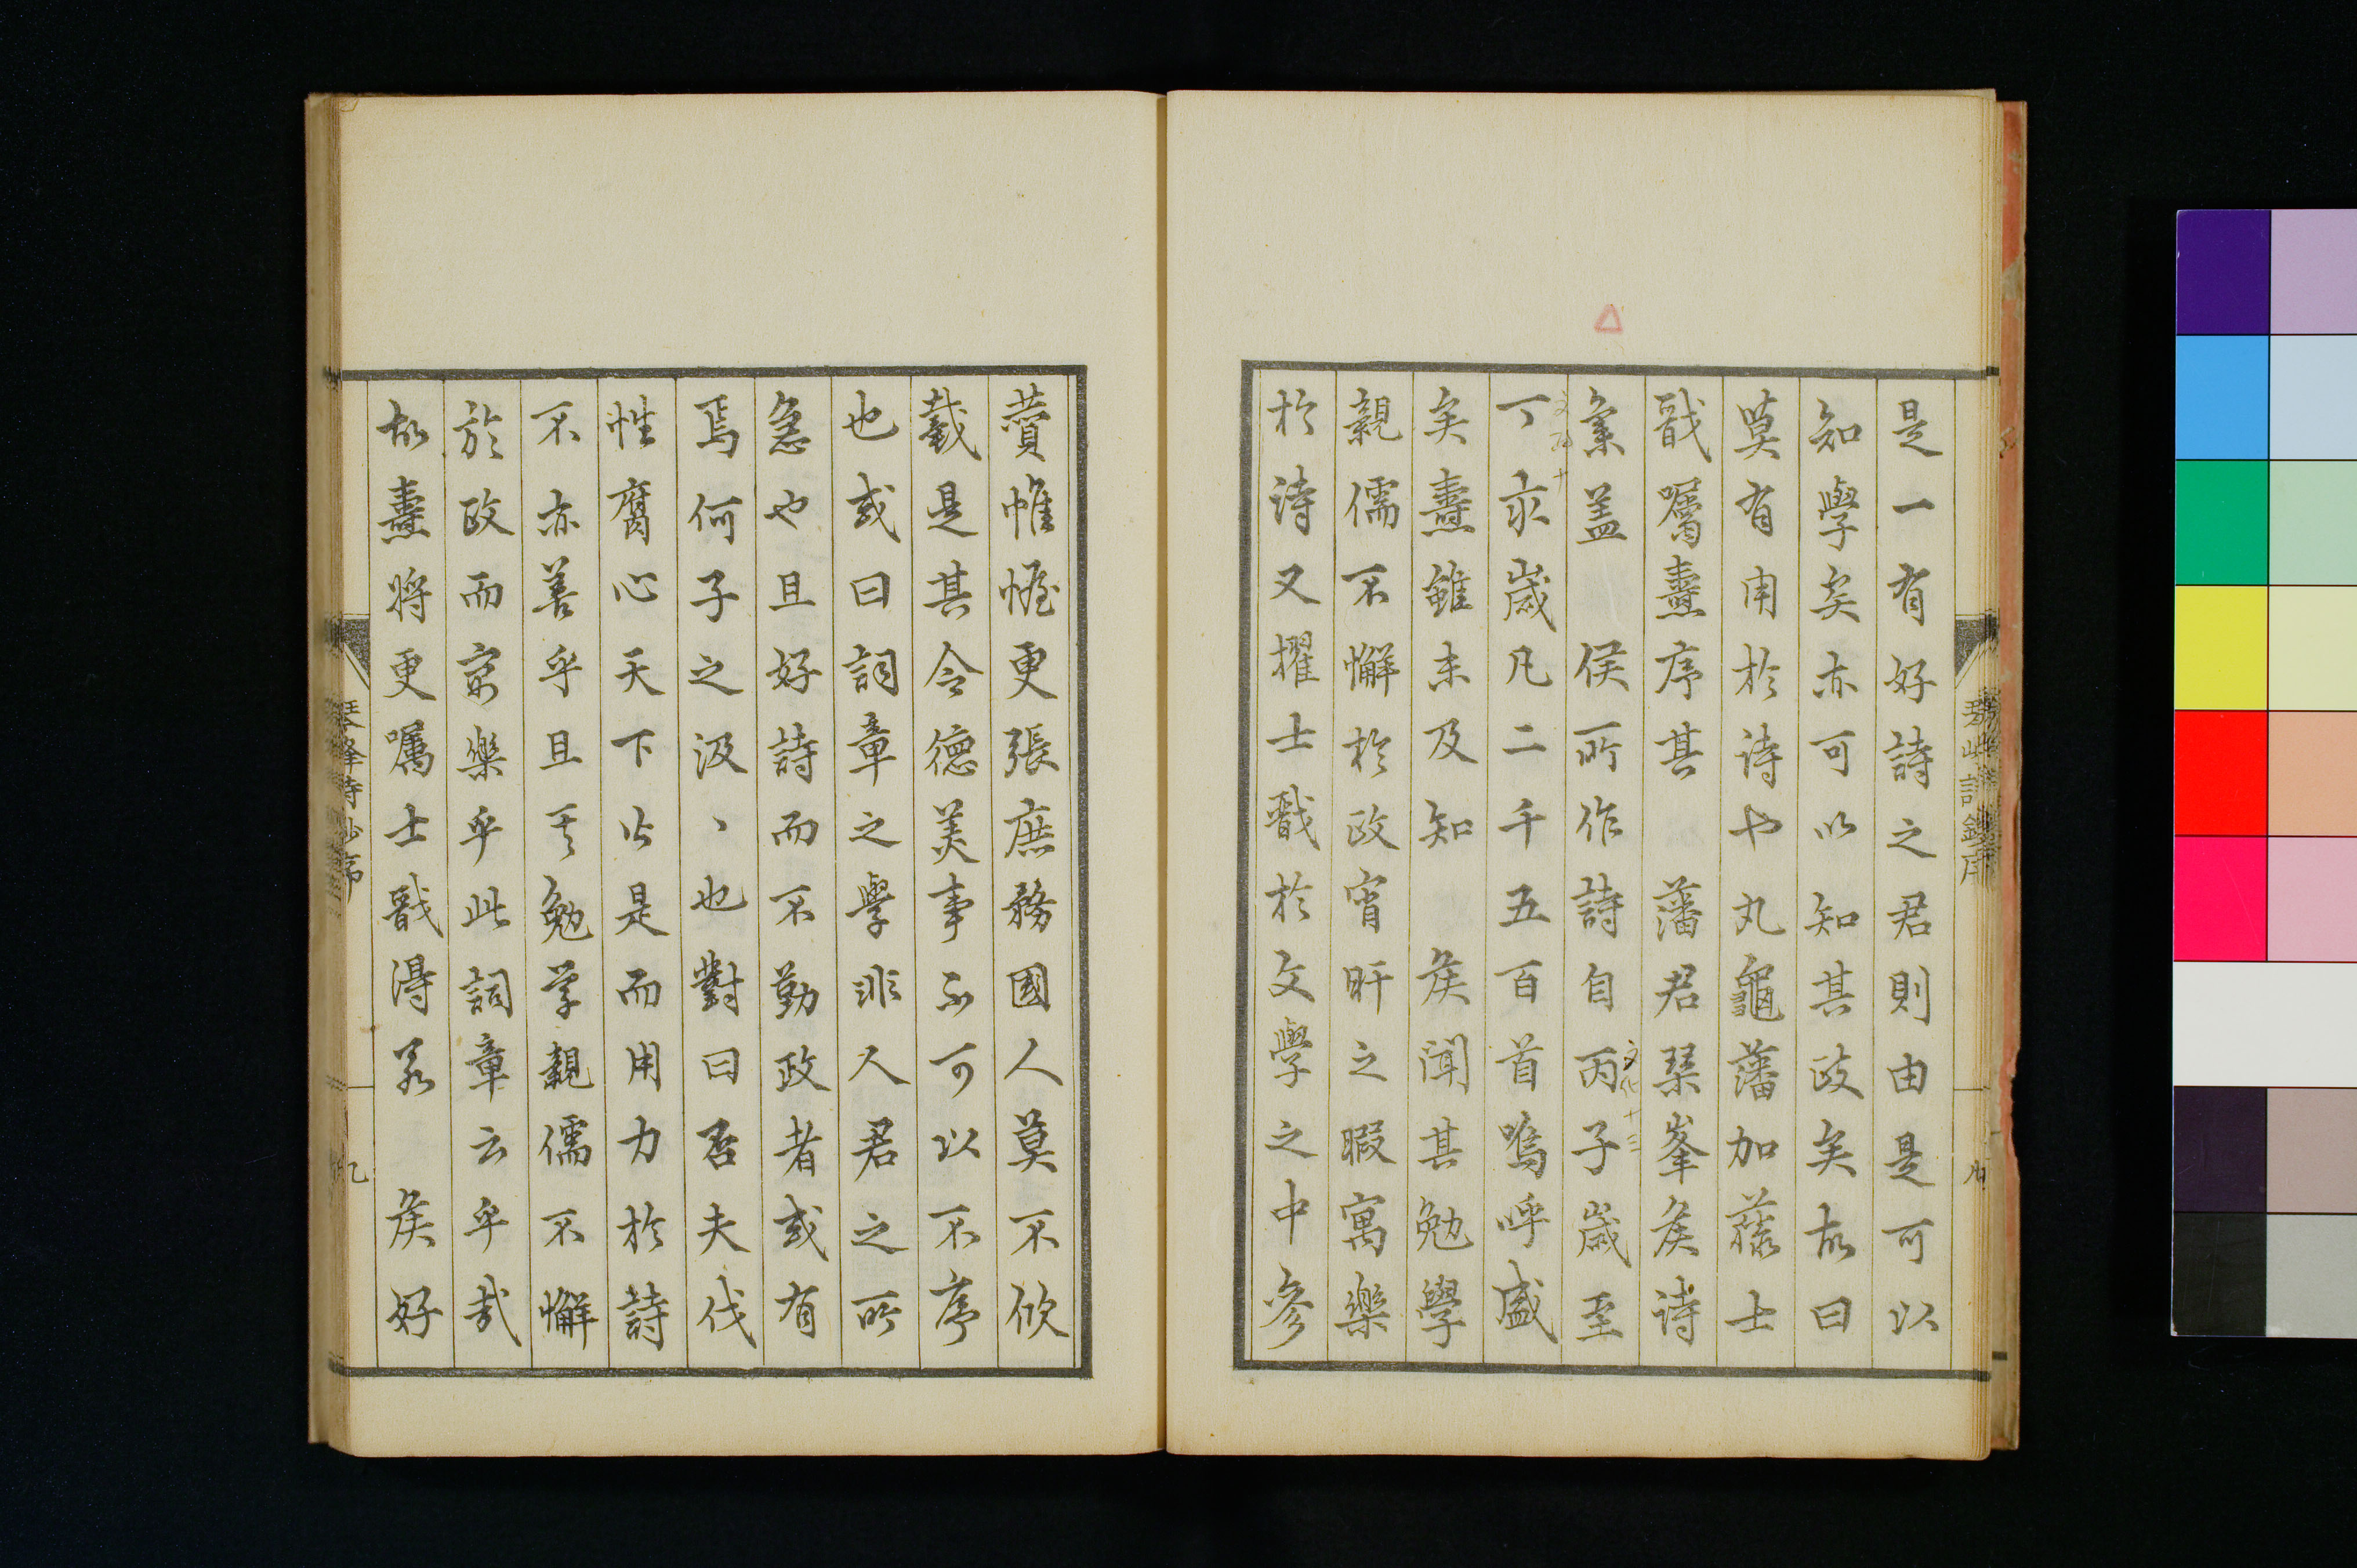 是一有好詩之君則由是可以
知學矣亦可以知其政矣故曰
莫有用於诗也丸龜藩加藤士
戩囑燾序其　藩君琹峯矦诗
彙盖　侯所作詩自丙子歲至
文化十三
丁亥歲凡二千五百首嗚呼盛
文政十
矣燾雖未及知　矦聞其勉學
親儒不懈於政宵旰之暇寓樂
於诗又擢士戩於文學之中參
賛帷幄更張庶務國人莫不攸
戴是其令德美事不可以不序
也或曰詞章之學非人君之所
急也且好詩而不勤政者或有
焉何子之汲丶也對曰否夫伐
性腐心天下以是而用力於詩
不亦善乎且夫勉学親儒不懈
於政而寓樂乎此詞章云乎哉
故燾將更囑士戩得若　矦好
琴峯詩鈔序